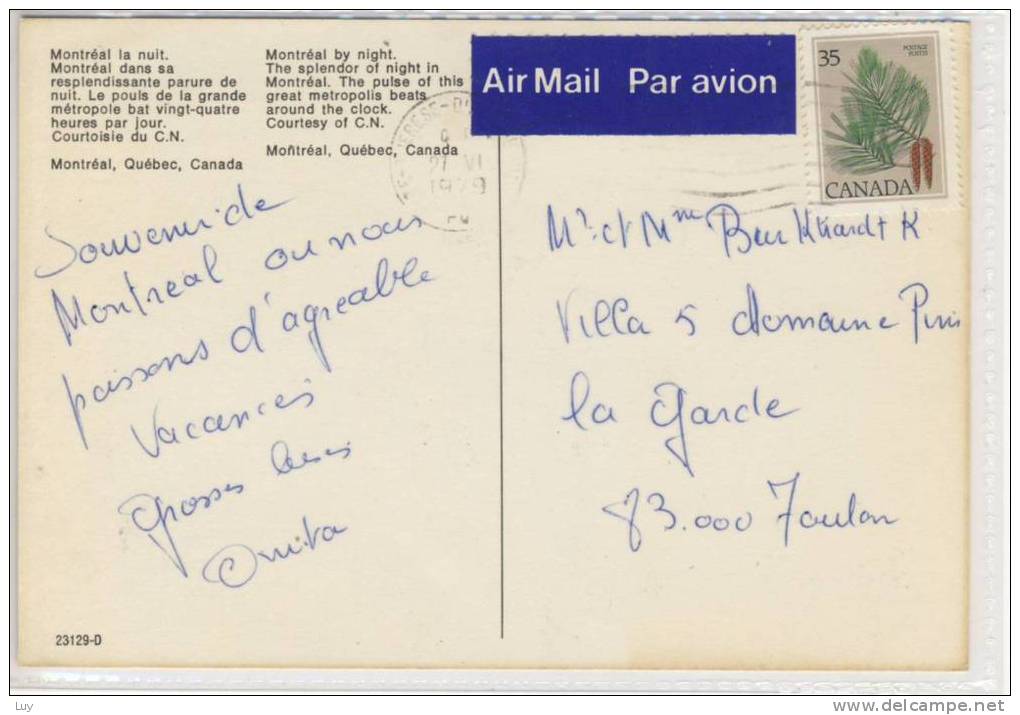 Montréal la nuit.
Montréal dans sa
resplendissante parure de
nuit. Le pouls de la grande
métropole bat vingt-quatre
heures par jour.
Courtoisie du C.N.
Montréal, Québec, Canada
Montréal by night.
The splendor of night in
Montréal. The pulse of this
great metropolis beats
around the clock.
Courtesy of C.N.
Montréal, Québec, Canada
Air Mail Par avion
35
POSTAGE
POSTES
CANADA
27 VI
1979
Souvenir de
Montreal ou nous
passons d'agreable
vacances
Grosses bises
Mr et Mme Burkhardt K
Villa 5 domaine Pins
la Garde
83.000 Toulon
23129-D
Luy
www.delcampe.net